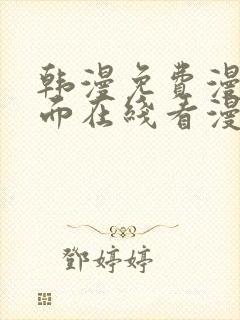 韩漫免费漫
而在线看漫
邓婷婷